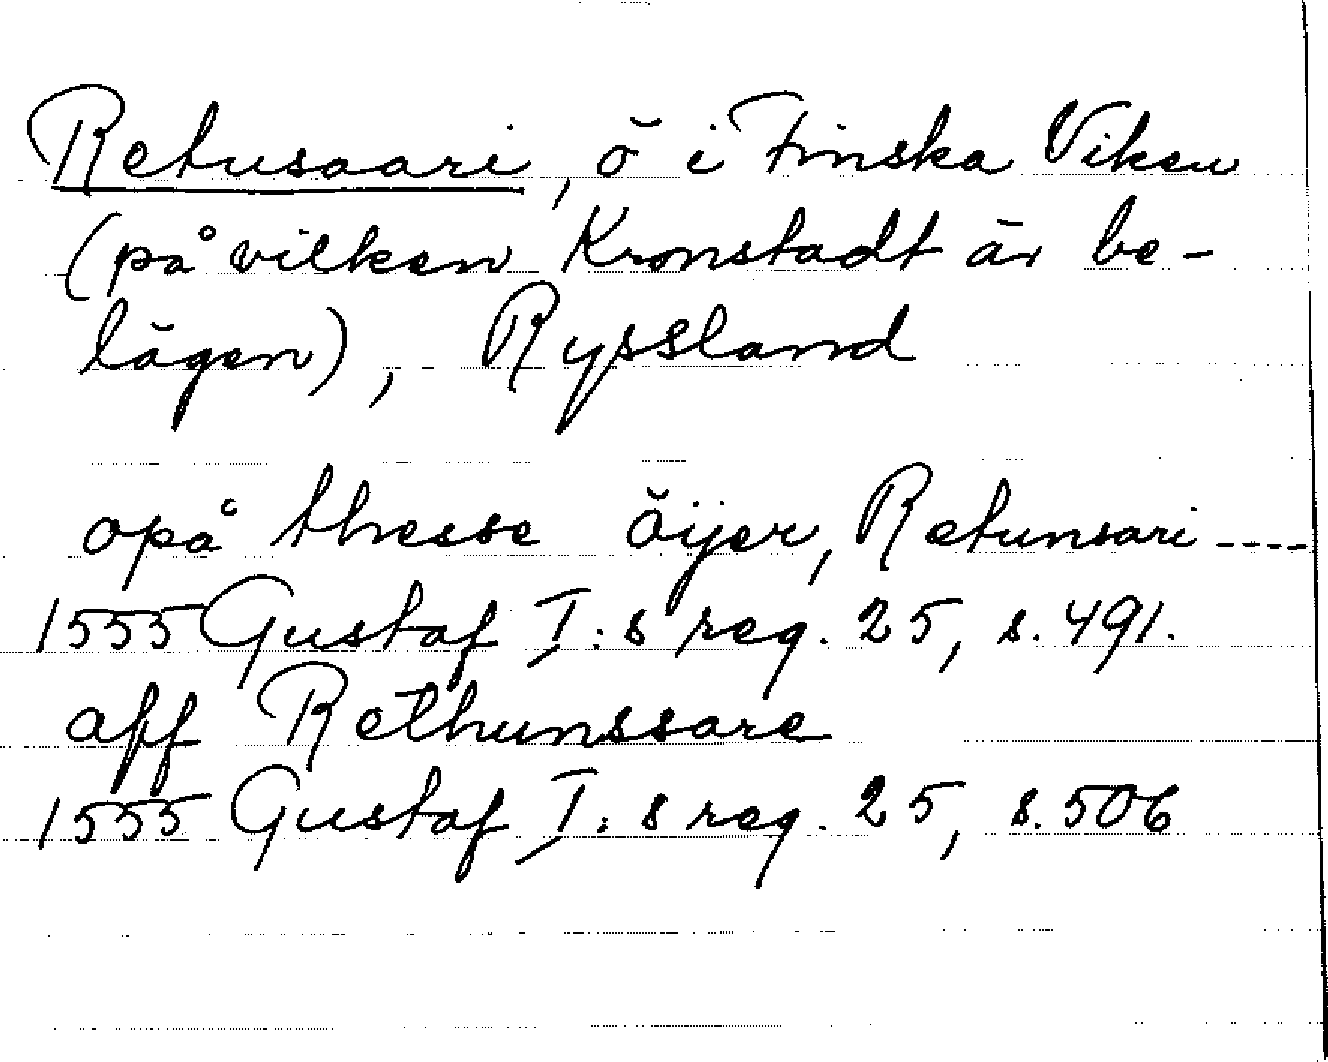 Retusaari, ö i Finska Viken
(på vilken Kronstadt är be-
lägen), Ryssland
opå thesse öijer, Retunsari ----
1555 Gustaf I:s reg. 25, s. 491.
aff Rethunssare
1555 Gustaf I:s reg. 25, s. 506